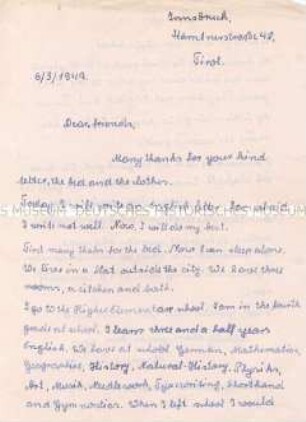 Innsbruck,
Tirol.
6/3/1949.
Dear friends,
Many thanks for your kind
letter, the bed and the clothes.
Today I will write an English letter
I write not well. Now, I will do my best.
First many thanks for the bed. Now I can sleep alone.
We live in a flat outside the city. We have three
rooms, a kitchen and bath.
I go to the Higher Elementar school. I am in the fourth
grade at school. I learn three and a half years
English. We have at school German, Mathematics,
Geographies, History, Natural-History, Physiks,
Art, Musik, Needlework, Typewriting, Shorthand
and Gymnastics. When I left school I would